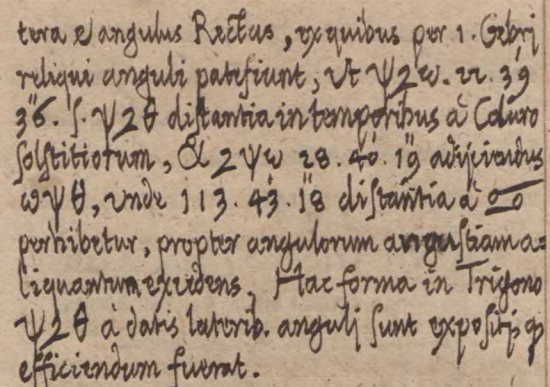 tera et angulus Rectus, ex quibus per 1. Gebrj
reliqui anguli patefiunt, ut Ψ2ω. 22. 39
36. s. Ψ2θ distantia in temporibus à Coluro
solstitiorum, & 2Ψω 28. 40. 19 adijciendus
ωΨθ, unde 113. 43. 18 distantia à ♎
perhibetur, propter angulorum angustiam a=
liquantum excedens, Hac forma in Trigono
Ψ2θ à datis laterib. angulj sunt expositj, qȝ
efficiendum fuerat.